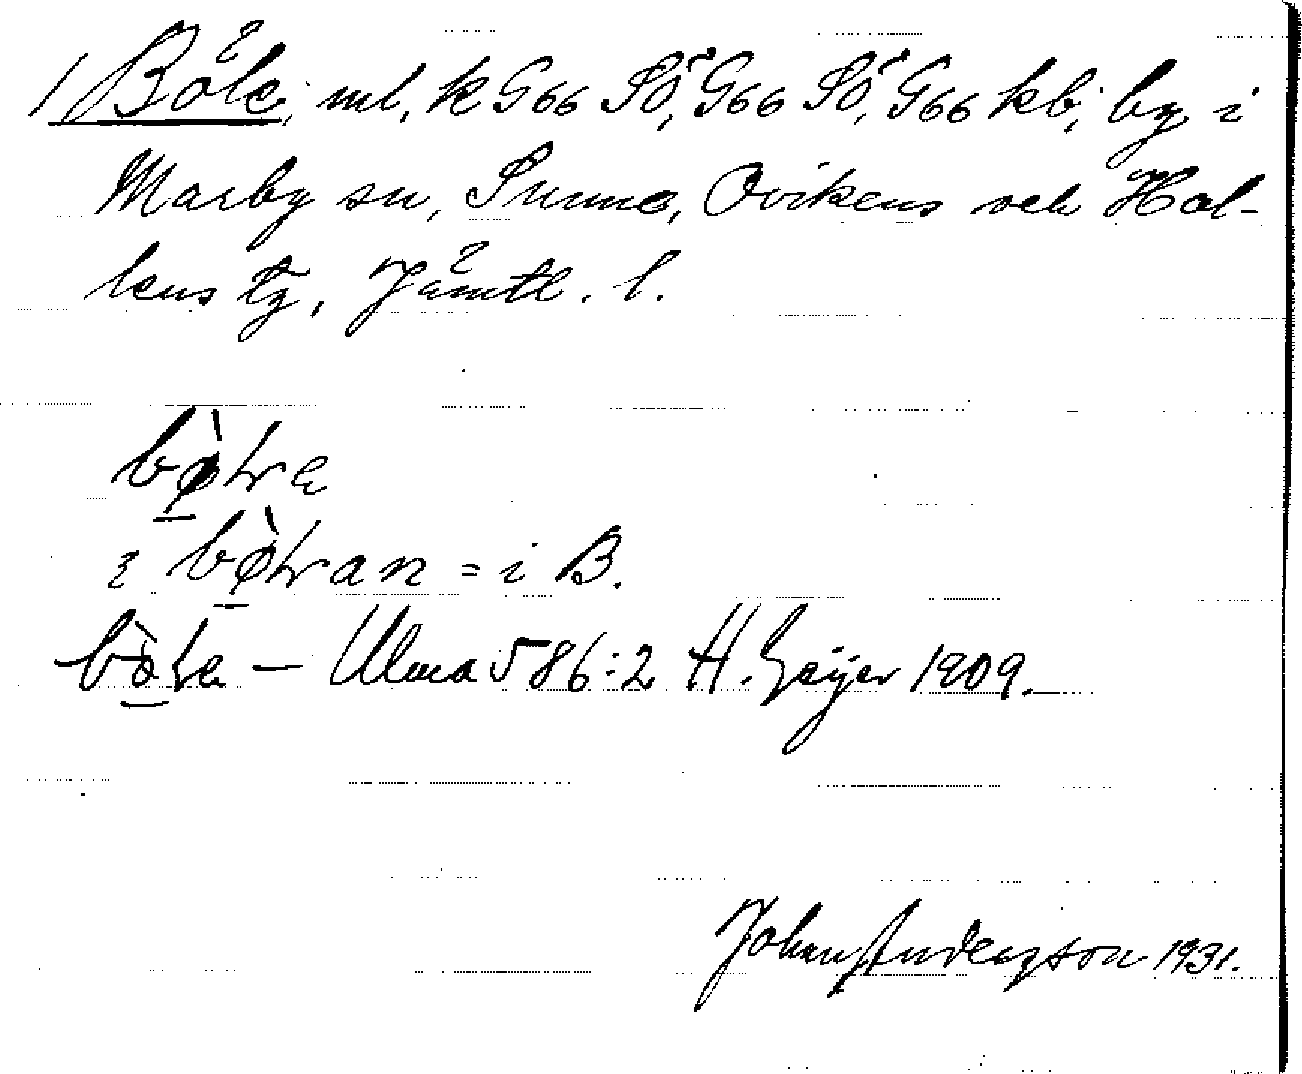 1, Böle, ml, k G66 SÖ, G66 SÖ, G66 kb; by i
Marby sn, Sunne, Ovikens och Hal-
lens tg, Jämtl. l.
bø̀lɛ
ɩ bø̀lan = i B.
bò̱la — Ulma 586:2 H. Geijer 1909.
Johan Anderzson 1931.